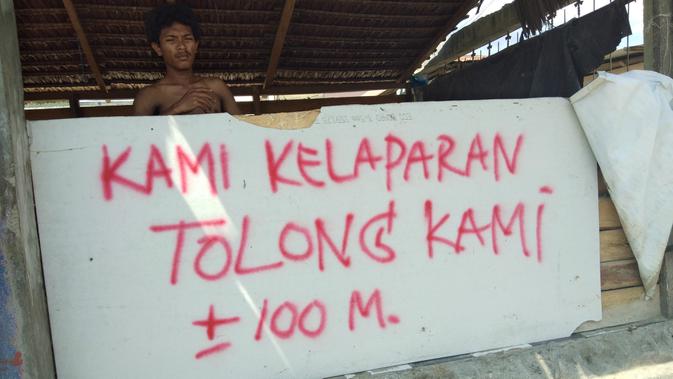 KAMI KELAPARAN
TOLONG KAMI
± 100 M.